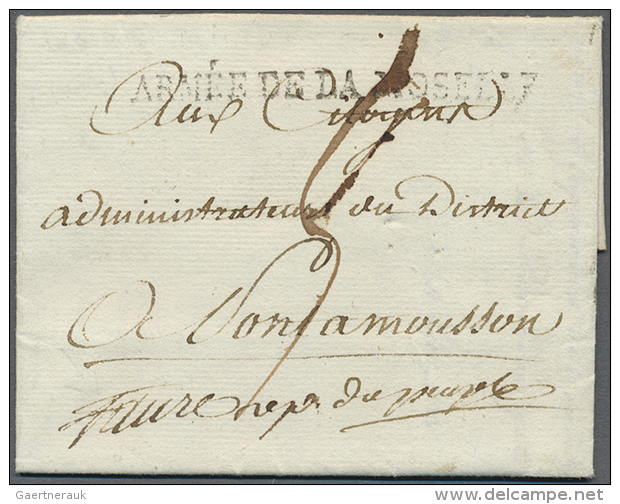 ARMÉE DE LA MOSELLE
Aux Citoyens
administrateurs du District
A Pontamousson
Faure repr. du peuple
Gaertnerauk
DELCAMPE.NET